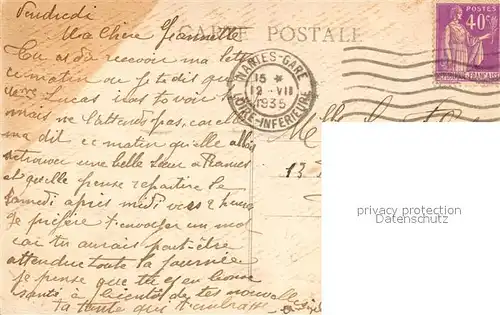 Vendredi
CARTE POSTALE
Ma Chère Jeannette
Tu as dû recevoir ma lettre
ce matin ou je te dis que
Lucas irait te voir
mais ne l'attends pas, car elle
m'a dit ce matin qu'elle allait
retrouver une belle Sœur à Nantes
et qu'elle pense repartir le
Samedi après midi vers 2 heures
je préfère t'envoyer un mot
car tu aurais peut-être
attendu toute la journée
je pense que tu es en bonne
santé à bientôt de tes nouvelles
ta tante qui t'embrasse
NANTES-GARE
15 *
12 - VII
1935
LOIRE-INFERIEURE
POSTES
40c
REPUBLIQUE FRANÇAISE
Melle
13
privacy protection
Datenschutz